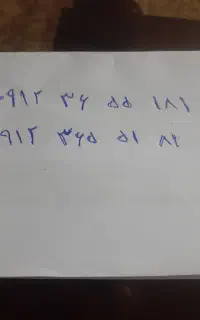 ۰۹۱۲ ۳۶ ۵۵ ۱۸۱
۹۱۲ ۳۶۵ ۵۱ ۸۱